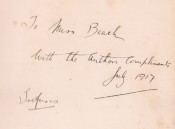 To Miss Beach
With the Authors Compliments
July 1917